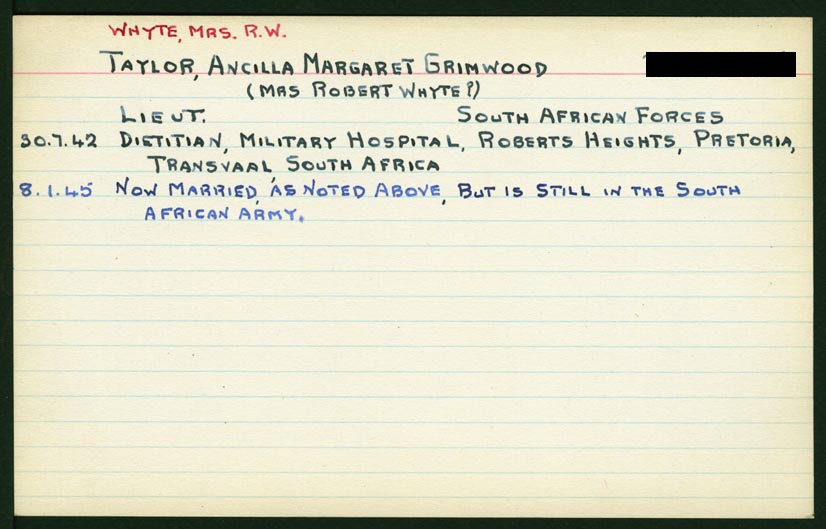 WHYTE, MRS. R.W.
TAYLOR, ANCILLA MARGARET GRIMWOOD
(MRS ROBERT WHYTE?)
LIEUT. SOUTH AFRICAN FORCES
30.7.42 DIETITIAN, MILITARY HOSPITAL, ROBERTS HEIGHTS, PRETORIA,
TRANSVAAL, SOUTH AFRICA
8.1.45 NOW MARRIED, AS NOTED ABOVE, BUT IS STILL IN THE SOUTH
AFRICAN ARMY.